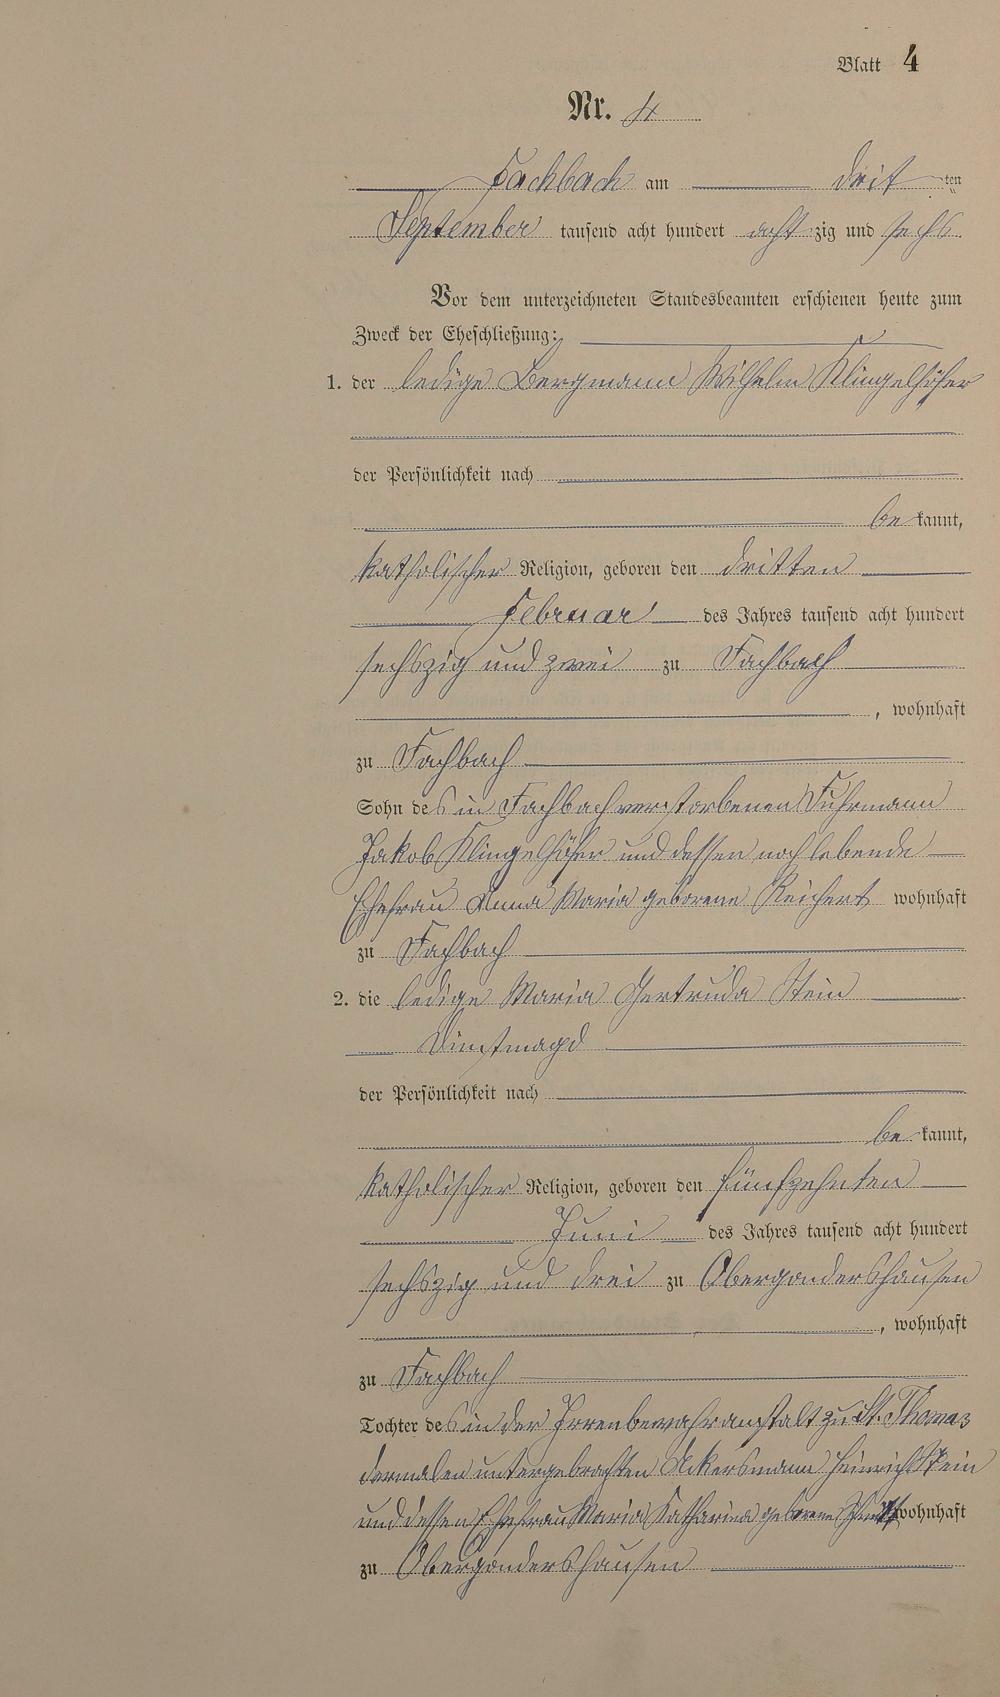 Blatt 4
Nr. 4
Fachbach am drit ten
September tausend acht hundert acht zig und sechs
Vor dem unterzeichneten Standesbeamten erschienen heute zum
Zweck der Eheschließung:
1. der ledige Bergmann Wilhelm Klingelhöfer
der Persönlichkeit nach
be kannt,
katholischer Religion, geboren den dritten
Februar des Jahres tausend acht hundert
sechszig und zwei zu Fachbach
, wohnhaft
zu Fachbach
Sohn des in Fachbach verstorbenen Fuhrmann
Jakob Klingelhöfer und dessen noch lebende
Ehefrau Anna Maria geborene Reichert wohnhaft
zu Fachbach
2. die ledige Maria Gertruda Stein
Dinstmagd
der Persönlichkeit nach
be kannt,
katholischer Religion, geboren den fünfzehnten
Juni des Jahres tausend acht hundert
sechszig und drei zu Obergondershausen
, wohnhaft
zu Fachbach
Tochter des in der Irrenbewahranstalt zu St. Thomas
dermalen untergebrachten Ackersmann Heinrich Stein
und dessen Ehefrau Maria Katharina geborene wohnhaft
zu Obergondershausen